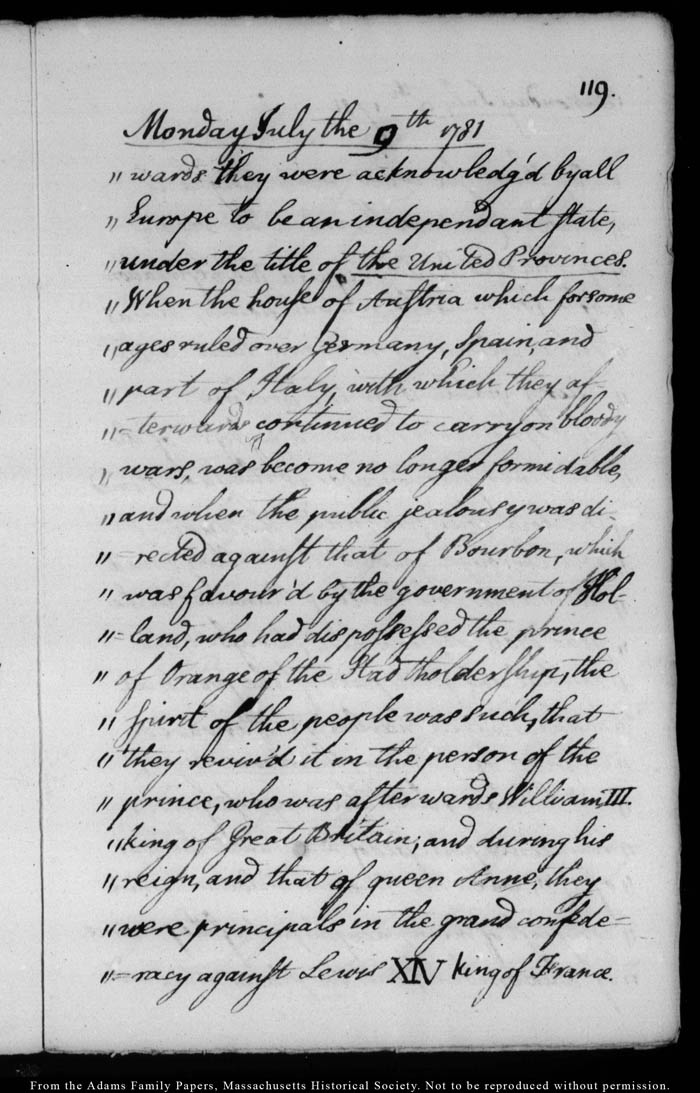 119.
Monday July the 9th 1781
" wards they were acknowledg'd by all
" Europe to be an independant state,
" under the title of the United Provinces.
" When the house of Austria which for some
" ages ruled over Germany, Spain, and
" part of Italy, with which they af-
" -terwards continued to carry on bloody
" wars, was become no longer formidable,
" and when the public jealousy was di-
" -rected against that of Bourbon, which
" was favour'd by the government of Hol-
" =land, who had dispossessed the prince
" of Orange of the Stadtholdership, the
" spirit of the people was such, that
" they reviv'd it in the person of the
" prince, who was afterwards William III.
" king of Great Britain; and during his
" reign, and that of queen Anne, they
" were principals in the grand confede=
" =racy against Lewis XIV king of France.
From the Adams Family Papers, Massachusetts Historical Society. Not to be reproduced without permission.